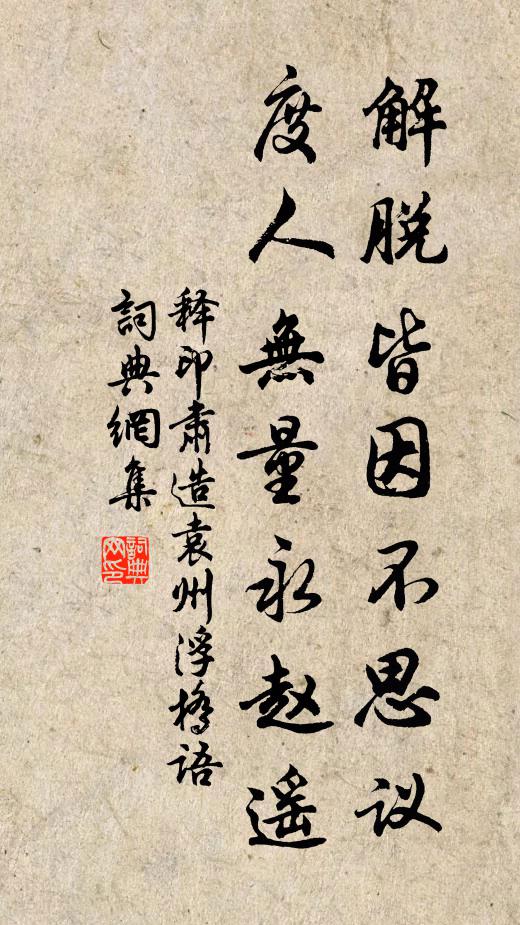 解脱皆因不思议
度人無量永赵遥
释印肃造袁州浮橋语
詞典網集
詞典网印